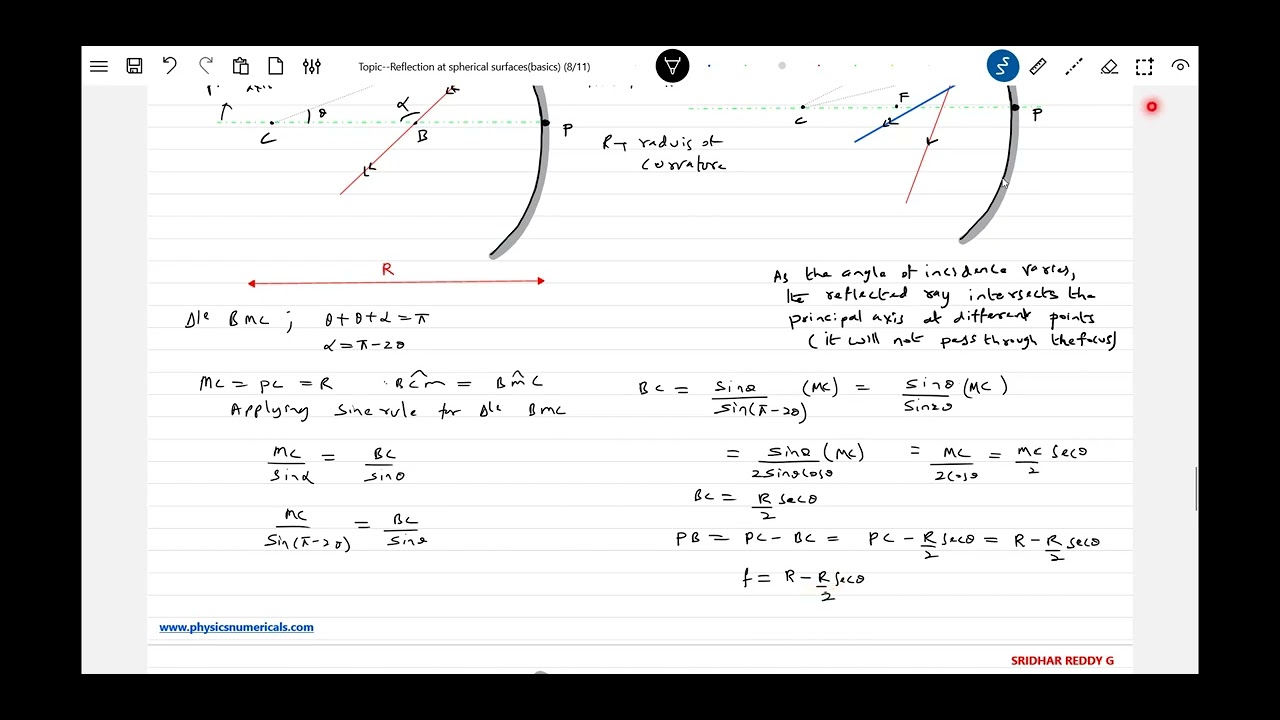 Topic--Reflection at spherical surfaces(basics) (8/11)
axis
θ
α
C
B
P
R → radvis of
curvature
F
C
P
R
As the angle of incidence varies,
the reflected ray intersects the
principal axis at different points
(it will not pass through the focus)
Δle BMC ; θ+θ+α = π
α = π-2θ
MC = PC = R ∴ BĈM = BM̂C
Applying sine rule for Δle BMC
MC/sinα = BC/sinθ
MC/sin(π-2θ) = BC/sinθ
BC = sinθ/sin(π-2θ) (MC) = sinθ/sin2θ (MC)
= sinθ/2sinθcosθ (MC) = MC/2cosθ = MC/2 secθ
BC = R/2 secθ
PB = PC - BC = PC - R/2 secθ = R - R/2 secθ
f = R - R/2 secθ
www.physicsnumericals.com
SRIDHAR REDDY G